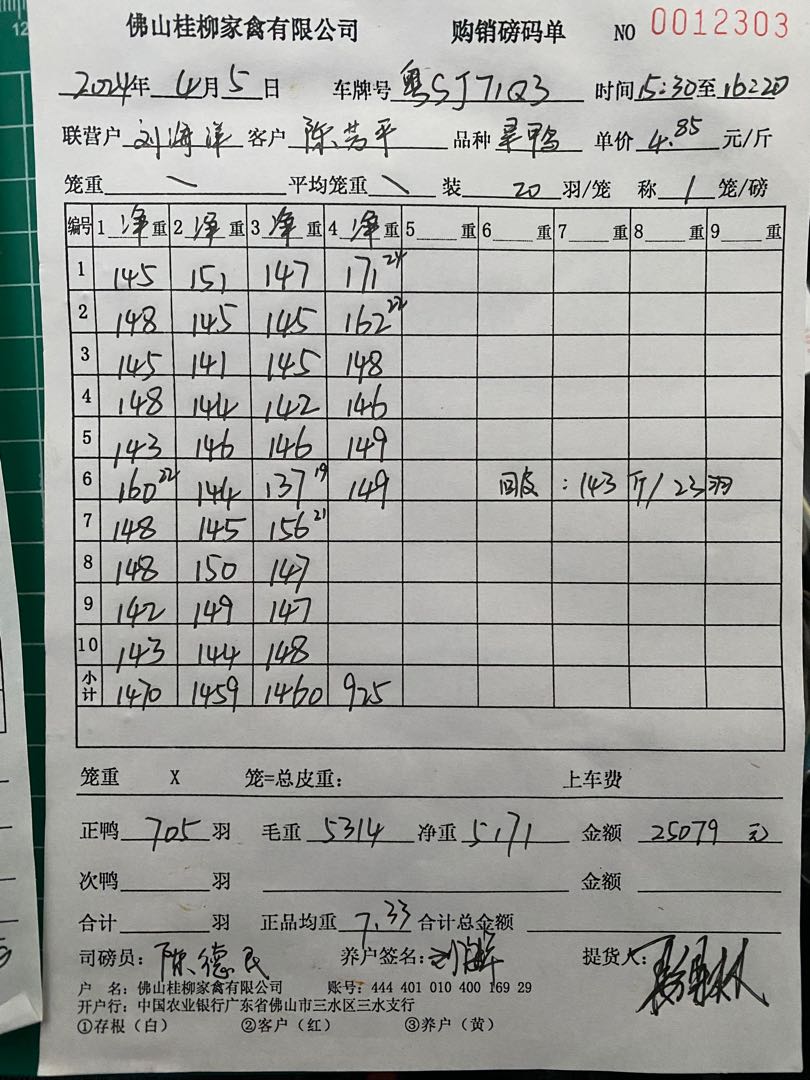 佛山桂柳家禽有限公司 购销磅码单 NO 0012303
2024年 4月5日 车牌号 粤SJ71Q3 时间 15:30至16:20
联营户 刘海洋 客户 陈芳平 品种 菜鸭 单价 4.85 元/斤
笼重 \ 平均笼重 \ 装 20 羽/笼 称 1 笼/磅
编号 1 净 重 2 净 重 3 净 重 4 净 重 5 重 6 重 7 重 8 重 9 重
1 145 151 147 171 24
2 148 145 145 162 22
3 145 141 145 148
4 148 144 142 146
5 143 146 146 149
6 160 22 144 137 19 149 回皮：143斤/23羽
7 148 145 156 21
8 148 150 147
9 142 149 147
10 143 144 148
小计 1470 1459 1460 925
笼重 X 笼=总皮重： 上车费
正鸭 705 羽 毛重 5314 净重 5171 金额 25079 元
次鸭 羽 金额
合计 羽 正品均重 7.33 合计总金额
司磅员：陈德民 养户签名：刘海洋 提货人：
户 名：佛山桂柳家禽有限公司 账号：444 401 010 400 169 29
开户行：中国农业银行广东省佛山市三水区三水支行
①存根（白） ②客户（红） ③养户（黄）